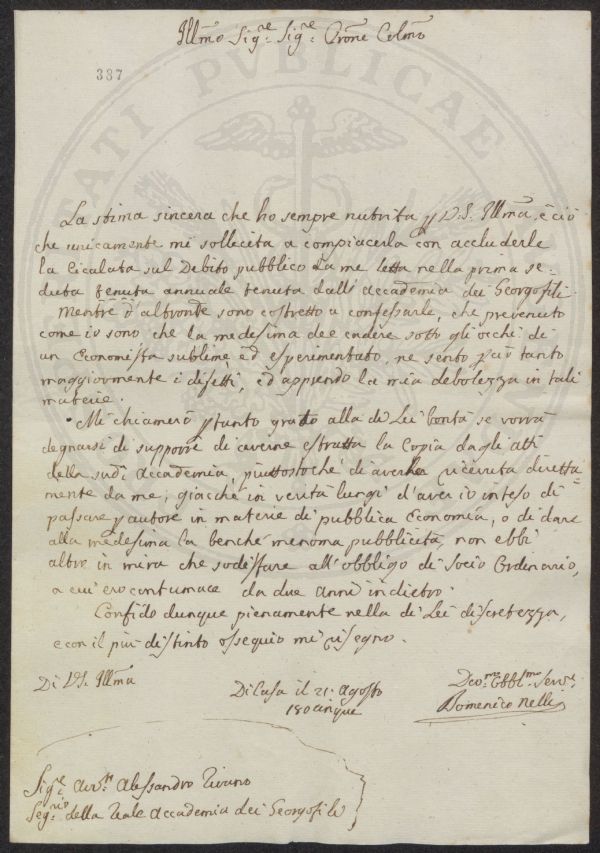 Illmo Sigre Sigre Prone Colmo
387
La stima sincera che ho sempre nutrita p V.S. Illma, è ciò
che unicamente mi sollecita a compiacerla con accluderle
la Cicalata sul Debito pubblico da me letta nella prima se=
duta tenuta annuale tenuta dall' Accademia dei Georgofili
Mentre d'altronde sono costretto a confessarle, che prevenuto
come io sono che la medesima dee cadere sotto gli occhi di
un Economista sublime ed esperimentato, ne sento più tanto
maggiormente i difetti, ed apprendo la mia debolezza in tali
materie.
Mi chiamerò ptanto grato alla di Lei bontà se vorrà
degnarsi di supporre di averne estratta la Copia dagli atti
della sudà Accademia, piuttostochè di averla ricevuta diretta=
mente da me; giacchè in verità lungi d'aver io inteso di
passare p autore in materie di pubblica Economia, o di dare
alla medesima la benchè menoma pubblicità, non ebbi
altro in mira che sodisfare all'obbligo di Socio Ordinario,
a cui ero contumace da due anni indietro.
Confido dunque pienamente nella di Lei discretezza,
e con il più distinto ossequio mi risegno.
Di V.S. Illma
Di Casa il 21. Agosto
180cinque
Devmo Obblmo Serve
Domenico Nelli
Sigre Avvto Alessandro Rivano
Segrio della Reale Accademia dei Georgofili
TATI PVBLICAE